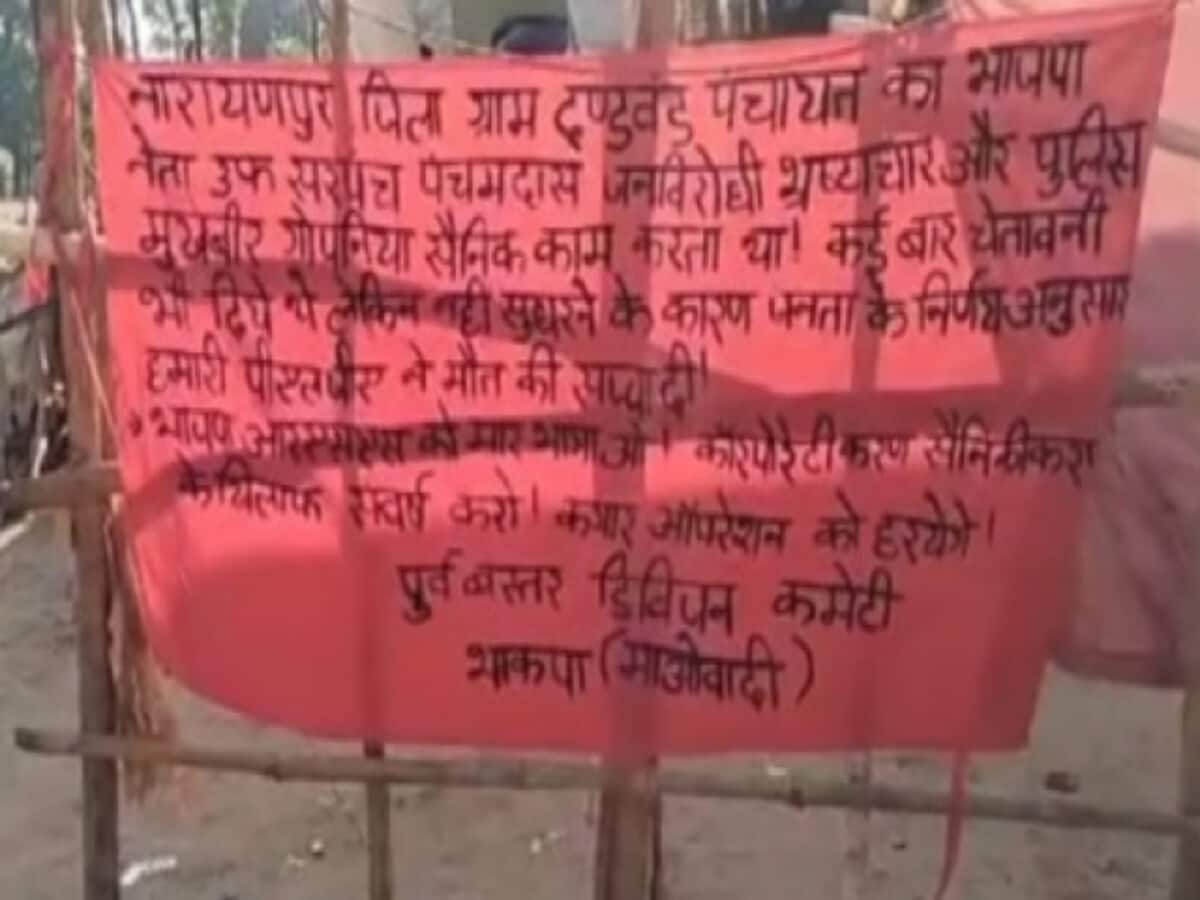 नारायणपुर जिला ग्राम दण्डवंड पंचायत का भाजपा
नेता उर्फ सरपंच पंचमदास जनविरोधी भ्रष्याचार और पुलिस
मुखबीर गोपनिया सैनिक काम करता था! कई बार चेतावनी
भी दिये थे लेकिन नही सुधरने के कारण जनता के निर्णय अनुसार
हमारी पीएलजीए ने मौत की सज्जा दी!
भाजपा आरएसएस को मार भगाओ! कॉरपोरेटीकरण सैनिकीकरण
के खिलाफ संघर्ष करो! कगार ऑपरेशन को हरायेगे!
पुर्व बस्तर डिविजन कमेटी
भाकपा (माओवादी)